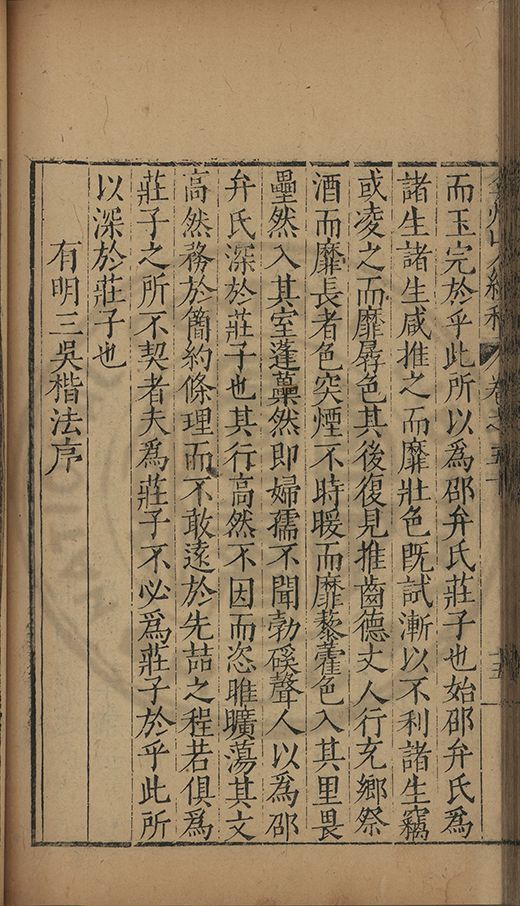 而玉完於乎此所以為邵弁氏莊子也始邵弁氏為
諸生諸生咸推之而靡壯色既試漸以不利諸生竊
或凌之而靡孱色其後復見推齒德丈人行充鄉祭
酒而靡長者色突煙不時暖而靡藜藿色入其里畏
壘然入其室蓬藁然即婦孺不聞勃磎聲人以為邵
弁氏深於莊子也其行高然不因而恣睢曠蕩其文
高然務於簡約條理而不敢遠於先喆之程若俱為
莊子之所不契者夫為莊子不必為莊子於乎此所
以深於莊子也
有明三吳楷法序